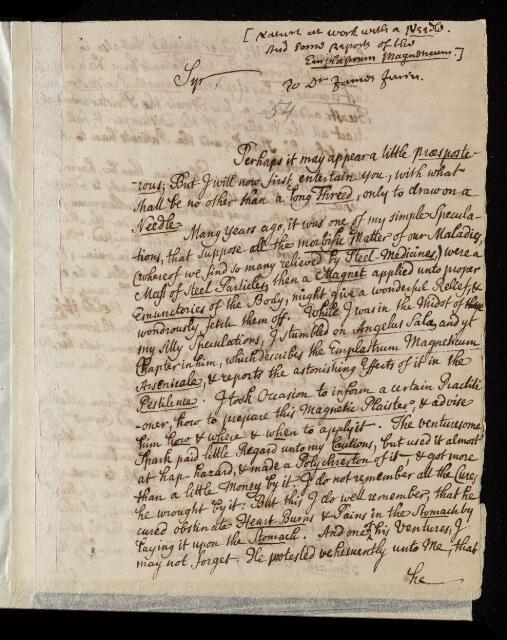 [Nature at work with a Needle.
And some Reports of the
Emplastrum Magneticum.]
Syr
To Dr James Jurin.
54
Perhaps it may appear a little præposte-
-rous; But I will now first entertain you, with what
shall be no other than a long Threed, only to draw on a
Needle.
Many years ago, it was one of my simple Specula-
tions, that suppose all the morbific Matter of our Maladies,
(whereof we find so many relieved by Steel-Medicines,) were a
Mass of Steel Particles, then a Magnet applied unto proper
Emunctories of the Body, might give a wonderful Relief, &
wondrously fetch them off. While I was in the Midst of
my silly Speculations, I stumbled on Angelus Sala, and yt
Chapter in him, which describes the Emplastrum Magneticum
Arsenicale, & reports the astonishing Effects of it in the
Pestilence. I took Occasion to inform a certain Practiti-
-oner, how to prepare this Magnetic Plaister, & advise
him how & where & when to apply it. The venturesome
Spark paid little Regard unto my Cautions, but used it almost
at hap-hazard, & made a Polychreston of it, & got more
than a little Money by it. I do not remember all the Cures,
he wrought by it: But this I do well remember, that he
cured obstinate Heart-Burns & Pains in the Stomach by
laying it upon the Stomach. And one of his Ventures, I
may not forget. He protested vehemently unto Me, that
he